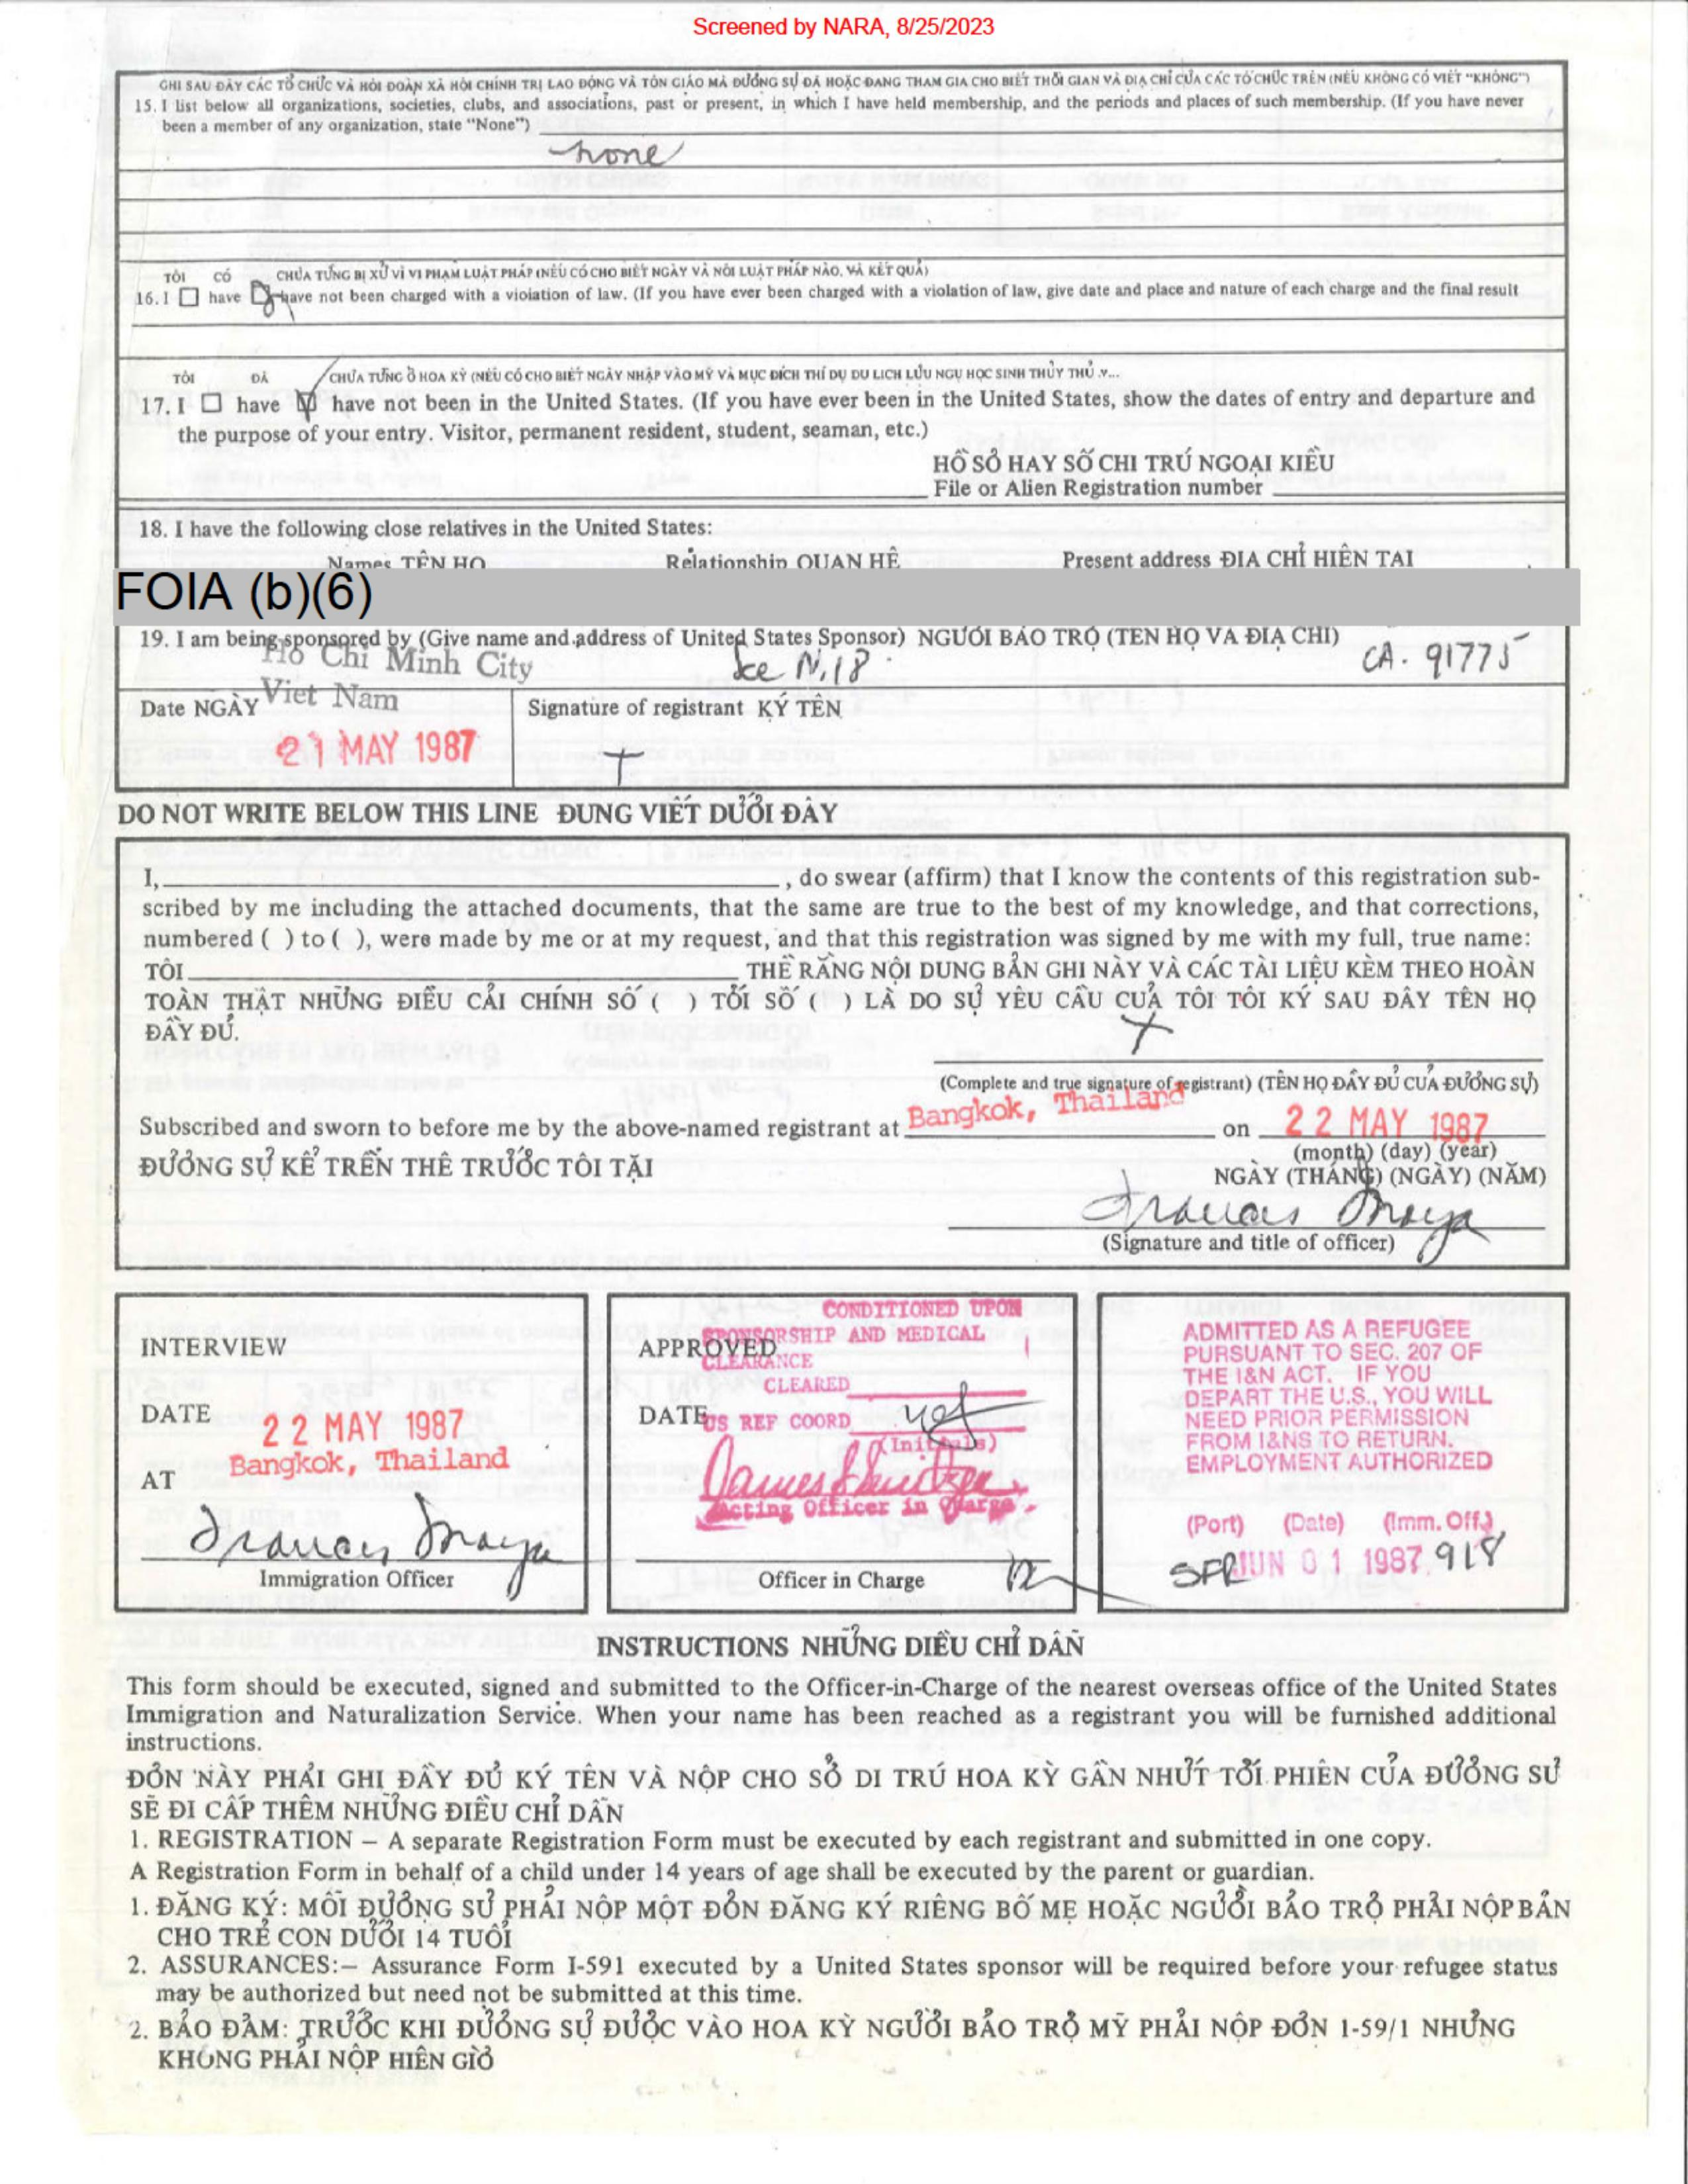 Screened by NARA, 8/25/2023
GHI SAU ĐÂY CÁC TỔ CHỨC VÀ HỘI ĐOÀN XÃ HỘI CHÍNH TRỊ LAO ĐỘNG VÀ TÔN GIÁO MÀ ĐƯƠNG SỰ ĐÃ HOẶC ĐANG THAM GIA CHO BIẾT THỜI GIAN VÀ ĐỊA CHỈ CỦA CÁC TỔ CHỨC TRÊN (NẾU KHÔNG CÓ VIẾT "KHÔNG")
15. I list below all organizations, societies, clubs, and associations, past or present, in which I have held membership, and the periods and places of such membership. (If you have never
been a member of any organization, state "None")
none
TÔI CÓ CHƯA TỪNG BỊ XỬ VÌ VI PHẠM LUẬT PHÁP (NẾU CÓ CHO BIẾT NGÀY VÀ NƠI LUẬT PHÁP NÀO, VÀ KẾT QUẢ)
16. I ☐ have ☐ have not been charged with a violation of law. (If you have ever been charged with a violation of law, give date and place and nature of each charge and the final result
TÔI ĐÃ CHƯA TỪNG Ở HOA KỲ (NẾU CÓ CHO BIẾT NGÀY NHẬP VÀO MỸ VÀ MỤC ĐÍCH THÍ DỤ DU LỊCH LƯU NGỤ HỌC SINH THỦY THỦ .v...
17. I ☐ have ☑ have not been in the United States. (If you have ever been in the United States, show the dates of entry and departure and
the purpose of your entry. Visitor, permanent resident, student, seaman, etc.)
HỒ SƠ HAY SỐ CHI TRÚ NGOẠI KIỀU
File or Alien Registration number
18. I have the following close relatives in the United States:
Names TÊN HỌ Relationship QUAN HỆ Present address ĐỊA CHỈ HIỆN TẠI
FOIA (b)(6)
19. I am being sponsored by (Give name and address of United States Sponsor) NGƯỜI BẢO TRỢ (TÊN HỌ VÀ ĐỊA CHỈ)
Ho Chi Minh City See N.18 CA. 91775
Viet Nam
Date NGÀY Signature of registrant KÝ TÊN
21 MAY 1987 +
DO NOT WRITE BELOW THIS LINE ĐỪNG VIẾT DƯỚI ĐÂY
I, , do swear (affirm) that I know the contents of this registration sub-
scribed by me including the attached documents, that the same are true to the best of my knowledge, and that corrections,
numbered ( ) to ( ), were made by me or at my request, and that this registration was signed by me with my full, true name:
TÔI THỀ RẰNG NỘI DUNG BẢN GHI NÀY VÀ CÁC TÀI LIỆU KÈM THEO HOÀN
TOÀN THẬT NHỮNG ĐIỀU CẢI CHÍNH SỐ ( ) TỚI SỐ ( ) LÀ DO SỰ YÊU CẦU CUẢ TÔI TÔI KÝ SAU ĐÂY TÊN HỌ
ĐẦY ĐỦ.
+
(Complete and true signature of registrant) (TÊN HỌ ĐẦY ĐỦ CUẢ ĐƯƠNG SỰ)
Subscribed and sworn to before me by the above-named registrant at Bangkok, Thailand on 22 MAY 1987
(month) (day) (year)
ĐƯƠNG SỰ KỂ TRÊN THỀ TRƯỚC TÔI TẠI NGÀY (THÁNG) (NGÀY) (NĂM)
(Signature and title of officer)
INTERVIEW
DATE 22 MAY 1987
AT Bangkok, Thailand
Immigration Officer
CONDITIONED UPON
SPONSORSHIP AND MEDICAL
APPROVED
CLEARANCE
CLEARED
DATE US REF COORD
(Initials)
Acting Officer in Charge
Officer in Charge
ADMITTED AS A REFUGEE
PURSUANT TO SEC. 207 OF
THE I&N ACT. IF YOU
DEPART THE U.S., YOU WILL
NEED PRIOR PERMISSION
FROM I&NS TO RETURN.
EMPLOYMENT AUTHORIZED
(Port) (Date) (Imm. Off.)
SFR JUN 01 1987 918
INSTRUCTIONS NHỮNG DIỀU CHỈ DẪN
This form should be executed, signed and submitted to the Officer-in-Charge of the nearest overseas office of the United States
Immigration and Naturalization Service. When your name has been reached as a registrant you will be furnished additional
instructions.
ĐƠN NÀY PHẢI GHI ĐẦY ĐỦ KÝ TÊN VÀ NỘP CHO SỞ DI TRÚ HOA KỲ GẦN NHỨT TỚI PHIÊN CỦA ĐƯƠNG SỰ
SẼ ĐI CẤP THÊM NHỮNG ĐIỀU CHỈ DẪN
1. REGISTRATION – A separate Registration Form must be executed by each registrant and submitted in one copy.
A Registration Form in behalf of a child under 14 years of age shall be executed by the parent or guardian.
1. ĐĂNG KÝ: MỖI ĐƯƠNG SỰ PHẢI NỘP MỘT ĐƠN ĐĂNG KÝ RIÊNG BỐ MẸ HOẶC NGƯỜI BẢO TRỢ PHẢI NỘP BẢN
CHO TRẺ CON DƯỚI 14 TUỔI
2. ASSURANCES:– Assurance Form I-591 executed by a United States sponsor will be required before your refugee status
may be authorized but need not be submitted at this time.
2. BẢO ĐẢM: TRƯỚC KHI ĐƯƠNG SỰ ĐƯỢC VÀO HOA KỲ NGƯỜI BẢO TRỢ MỸ PHẢI NỘP ĐƠN 1-59/1 NHƯNG
KHÔNG PHẢI NỘP HIÊN GIỜ